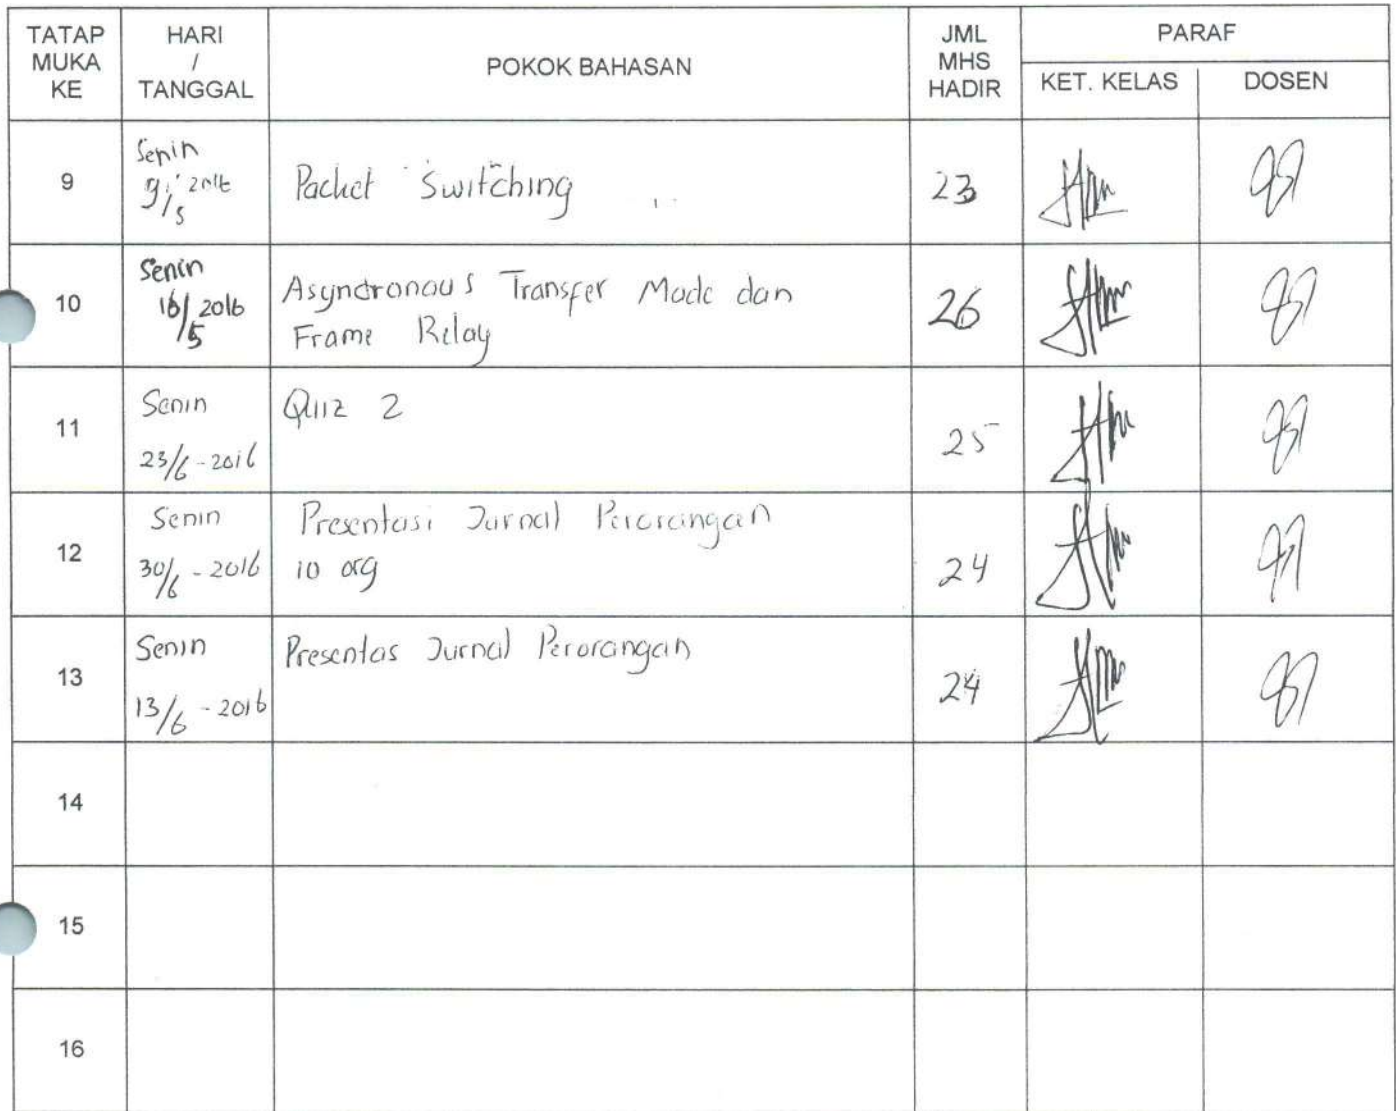 TATAP MUKA KE
HARI / TANGGAL
POKOK BAHASAN
JML MHS HADIR
PARAF
KET. KELAS
DOSEN
9
Senin
9/5 2016
Packet Switching
23
10
Senin
16/5 2016
Asyncronous Transfer Mode dan
Frame Relay
26
11
Senin
23/6 - 2016
Quiz 2
25
12
Senin
30/6 - 2016
Presentasi Jurnal Perorangan
10 org
24
13
Senin
13/6 - 2016
Presentas Jurnal Perorangan
24
14
15
16